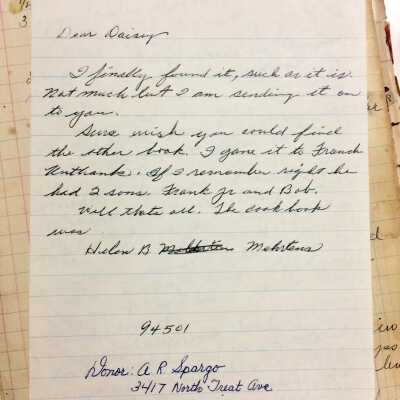 Dear Daisy
I finally found it, such as it is.
Not much but I am sending it on
to you.
Sure wish you could find
the other book. I gave it to Franch
Unthanks. If I remember right he
had 2 sons. Frank Jr and Bob.
Well thats all. The cookbook
was
Helen B. Mehrtens
94501
Donor: A. R. Spargo
3417 North Treat Ave